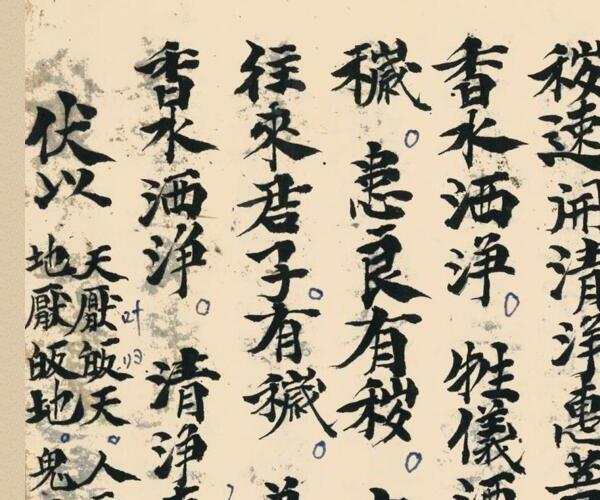 秽速開清淨惠
香水洒淨 牲儀洒
穢 恚良有秽
往來君子有穢
香水洒淨 清淨
伏以
天厭皈天人
地厭皈地鬼